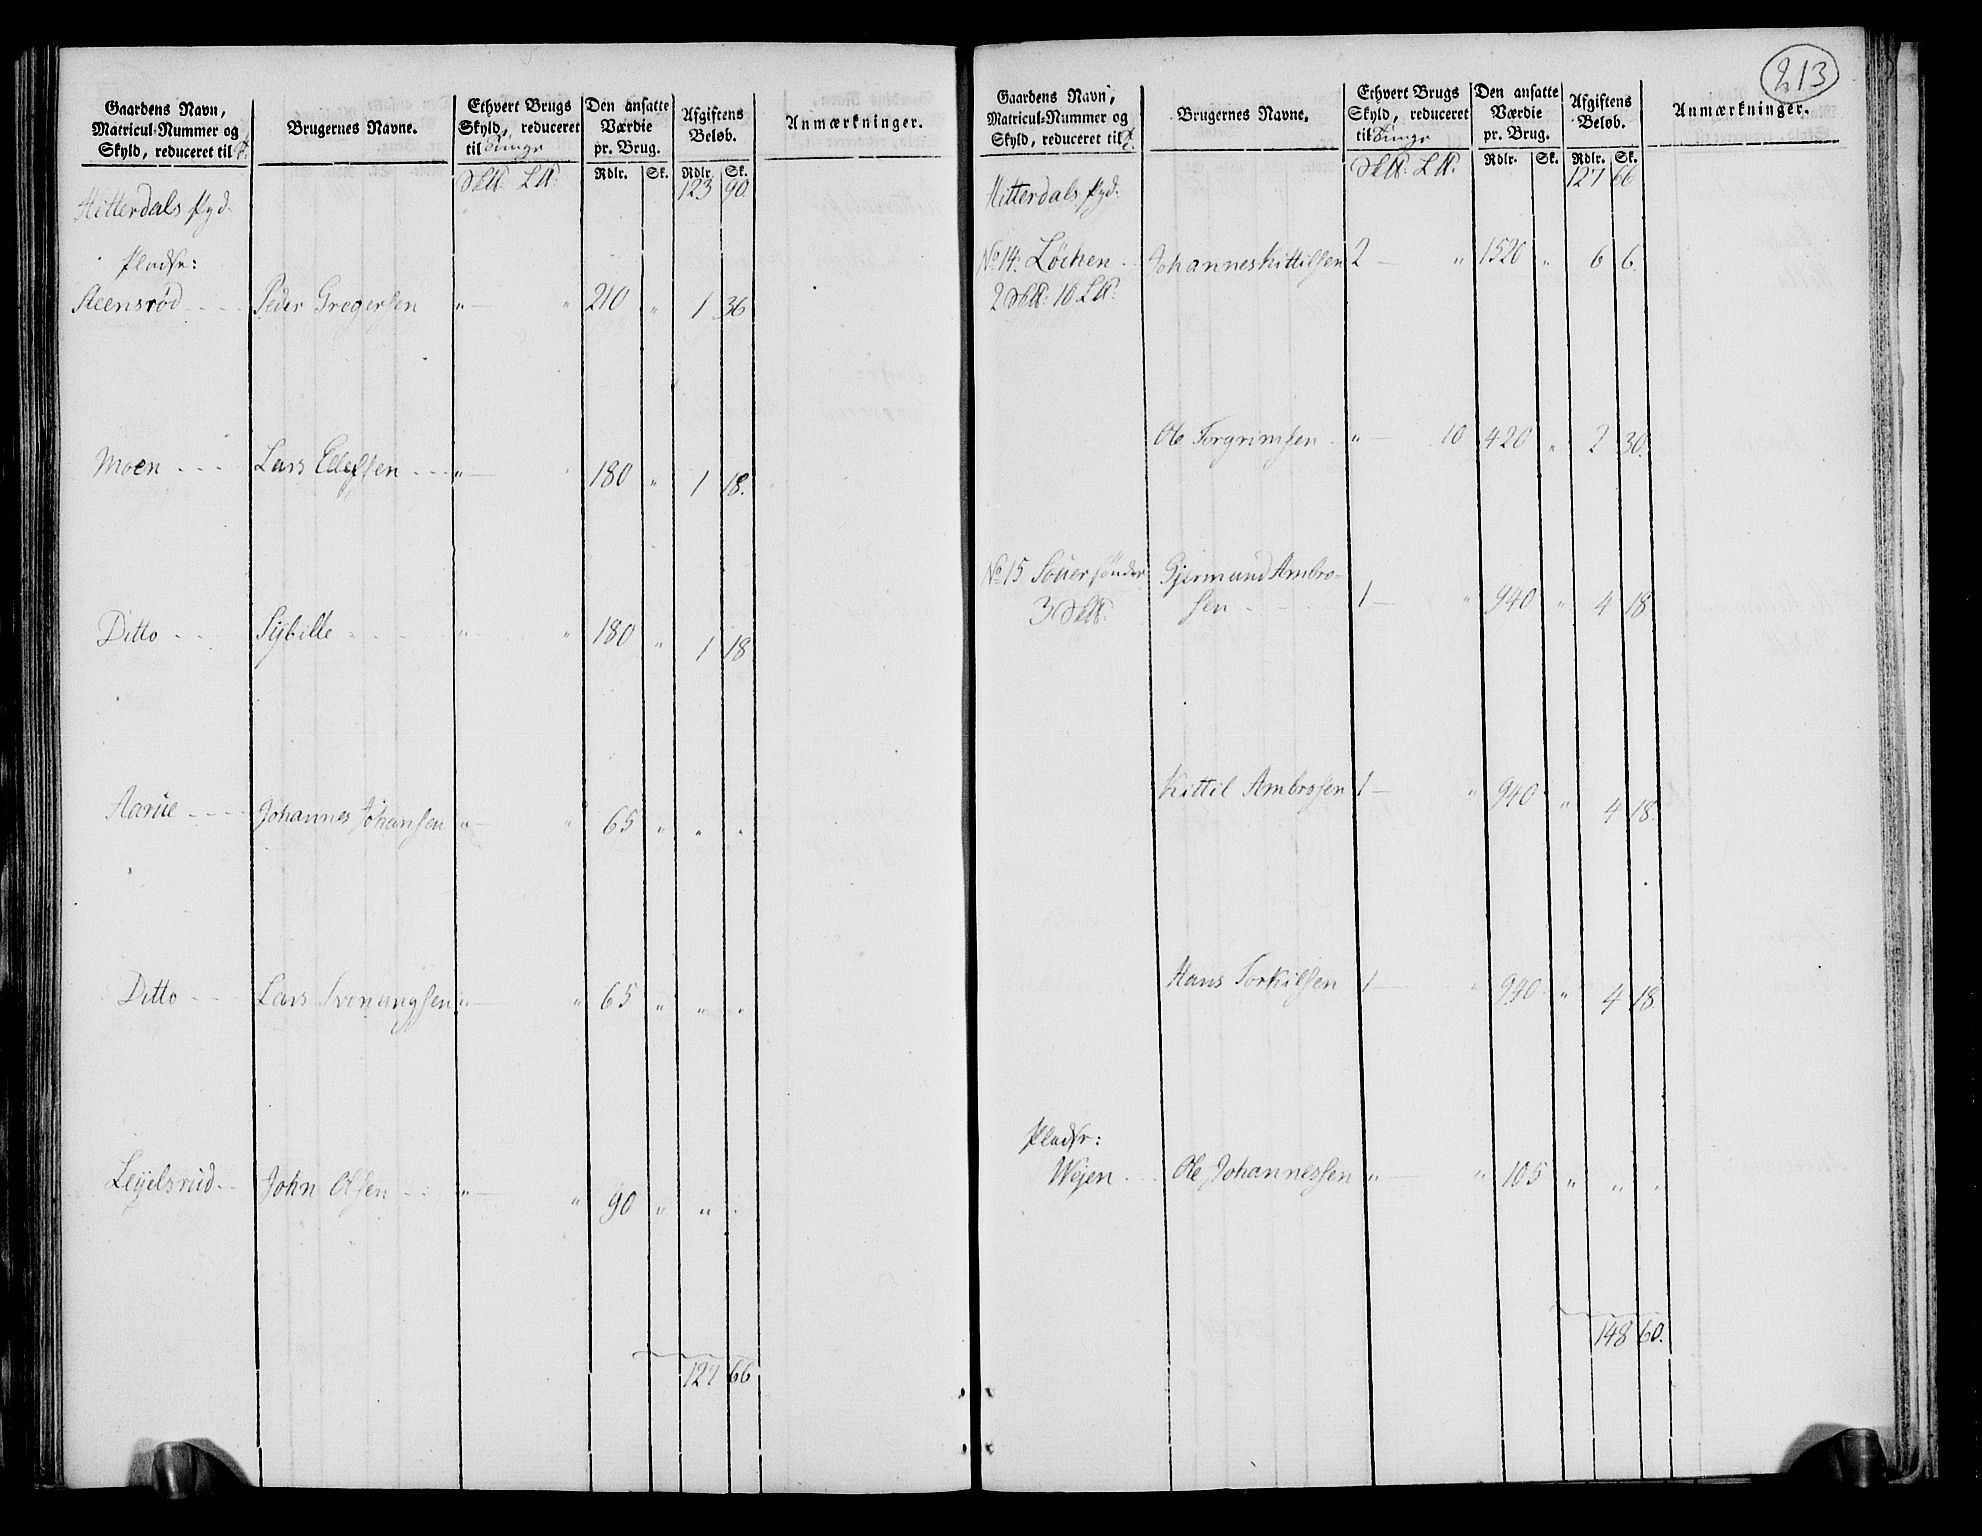 Gaardens Navn,
Matricul-Nummer og
Skyld, reduceret til
Brugernes Navne.
Ethvert Brugs
Skyld, reduceret
til Tunge
Den ansatte
Værdie
pr. Brug.
Afgiftens
Beløb.
Anmærkninger.
Rdlr. Sk. Rdlr. Sk.
123 90.
Hitterdals
Pladse:
Steensrød - - - Peder Gregersen " — " 210 " 1 36
Moen - - - Lars - - - " — " 180 " 1 18.
Ditto - - - Sÿbille - - - " " 180 " 1 18
Aarue - - - Johannes Johansen " — " 65 " " "
Ditto - - Lars Svenungsen " — " 65 " " "
Leÿelsrud - - John Olsen - - - " — " 90 " " "
127 66
213
Gaardens Navn,
Matricul-Nummer og
Skyld, reduceret til
Brugernes Navne.
Ethvert Brugs
Skyld, reduceret
til Tunge
Den ansatte
Værdie
pr. Brug.
Afgiftens
Beløb.
Anmærkninger.
Rdlr. Sk. Rdlr. Sk.
127 66
Hitterdals
No 14: Løchen - Johannes Kittilsen 2 — " 1520 " 6 6.
Ole Torgrimsen - " — 10 420 " 2 30.
No 15 Sønder Gjermund Ambro-
sen - - - 1 — " 940 " 4 18
Kittil Ambrosen 1 — " 940 " 4 18.
Hans Torkilsen 1 — " 940 " 4 18
Pladse:
Wejen - - Ole Johannessen " — " 105 " " "
148 60.